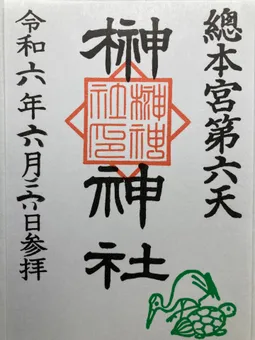 總本宮第六天
榊神社
榊神
社印
令和六年六月二六日参拝